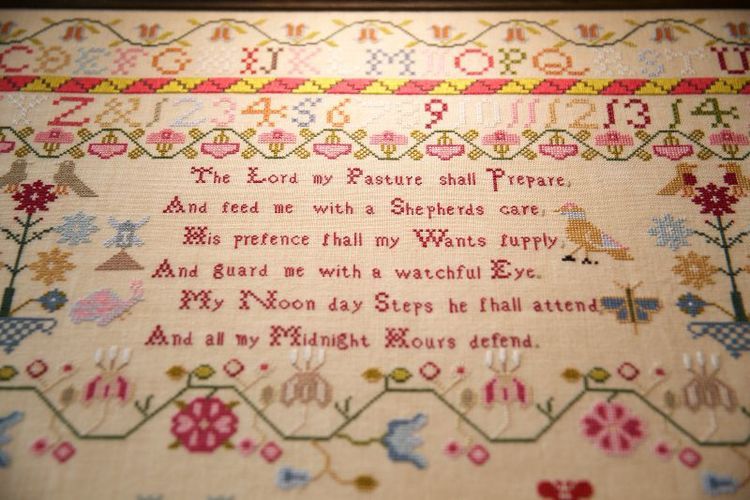 C D E F G H I J K L M N O P Q R S T U
Y Z & 1 2 3 4 5 6 7 8 9 10 11 12 13 14
The Lord my Pasture shall Prepare,
And feed me with a Shepherds care,
His preſence ſhall my Wants ſupply,
And guard me with a watchful Eye.
My Noon day Steps he ſhall attend,
And all my Midnight Hours defend.